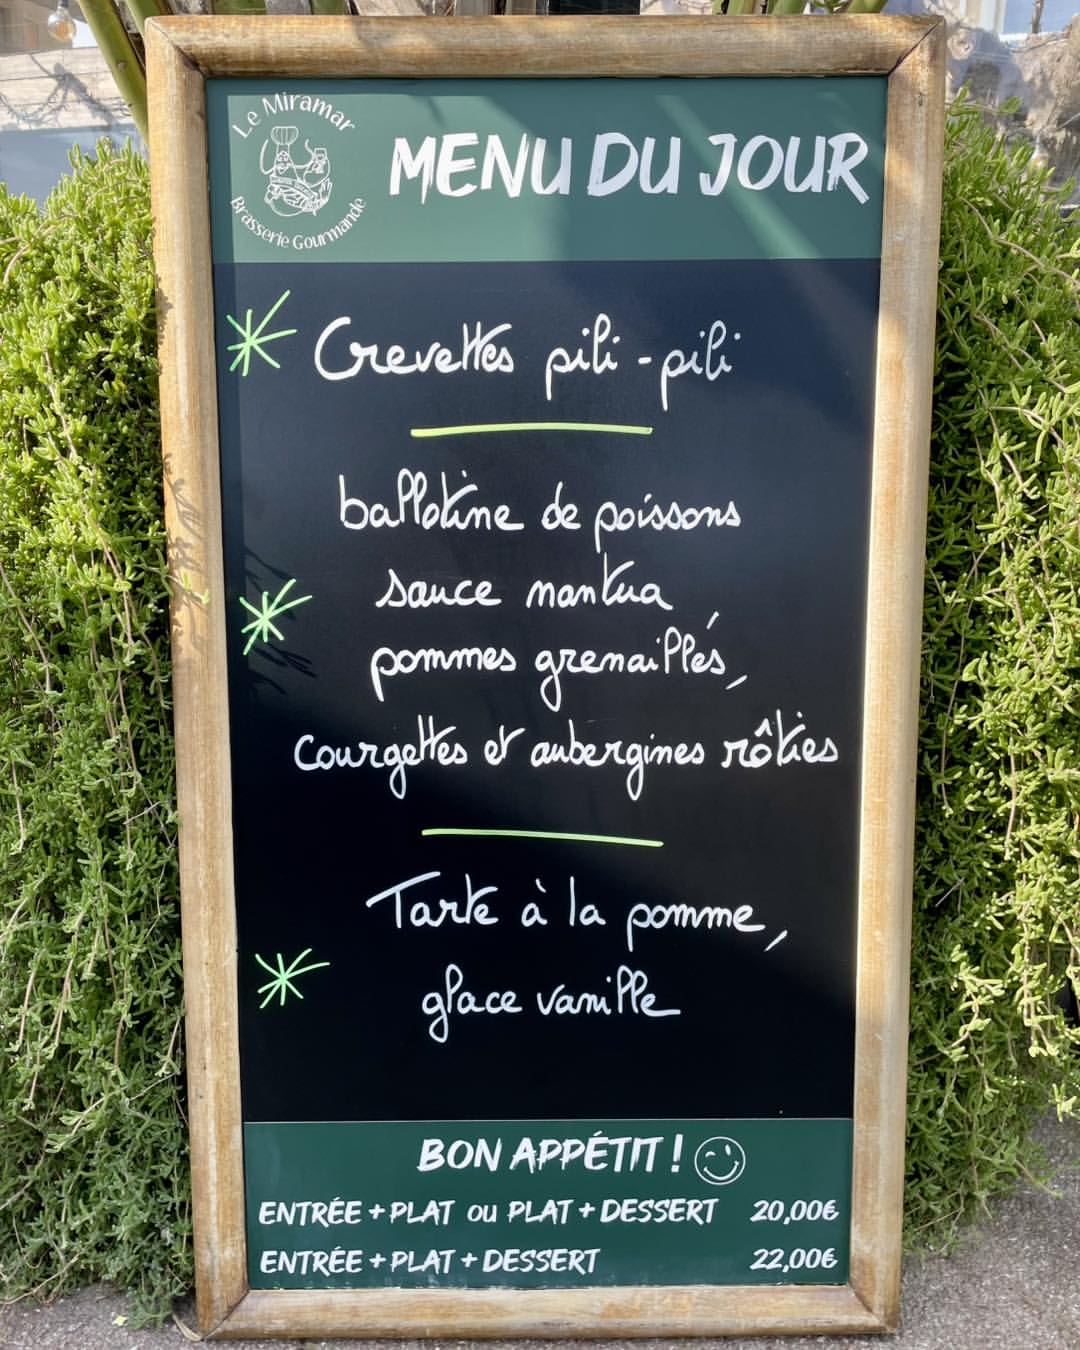 Le Miramar
Brasserie Gourmande
MENU DU JOUR
Crevettes pili-pili
ballotine de poissons
sauce nantua
pommes grenaillés,
courgettes et aubergines rôties
Tarte à la pomme,
glace vanille
BON APPÉTIT !
ENTRÉE + PLAT OU PLAT + DESSERT 20,00€
ENTRÉE + PLAT + DESSERT 22,00€